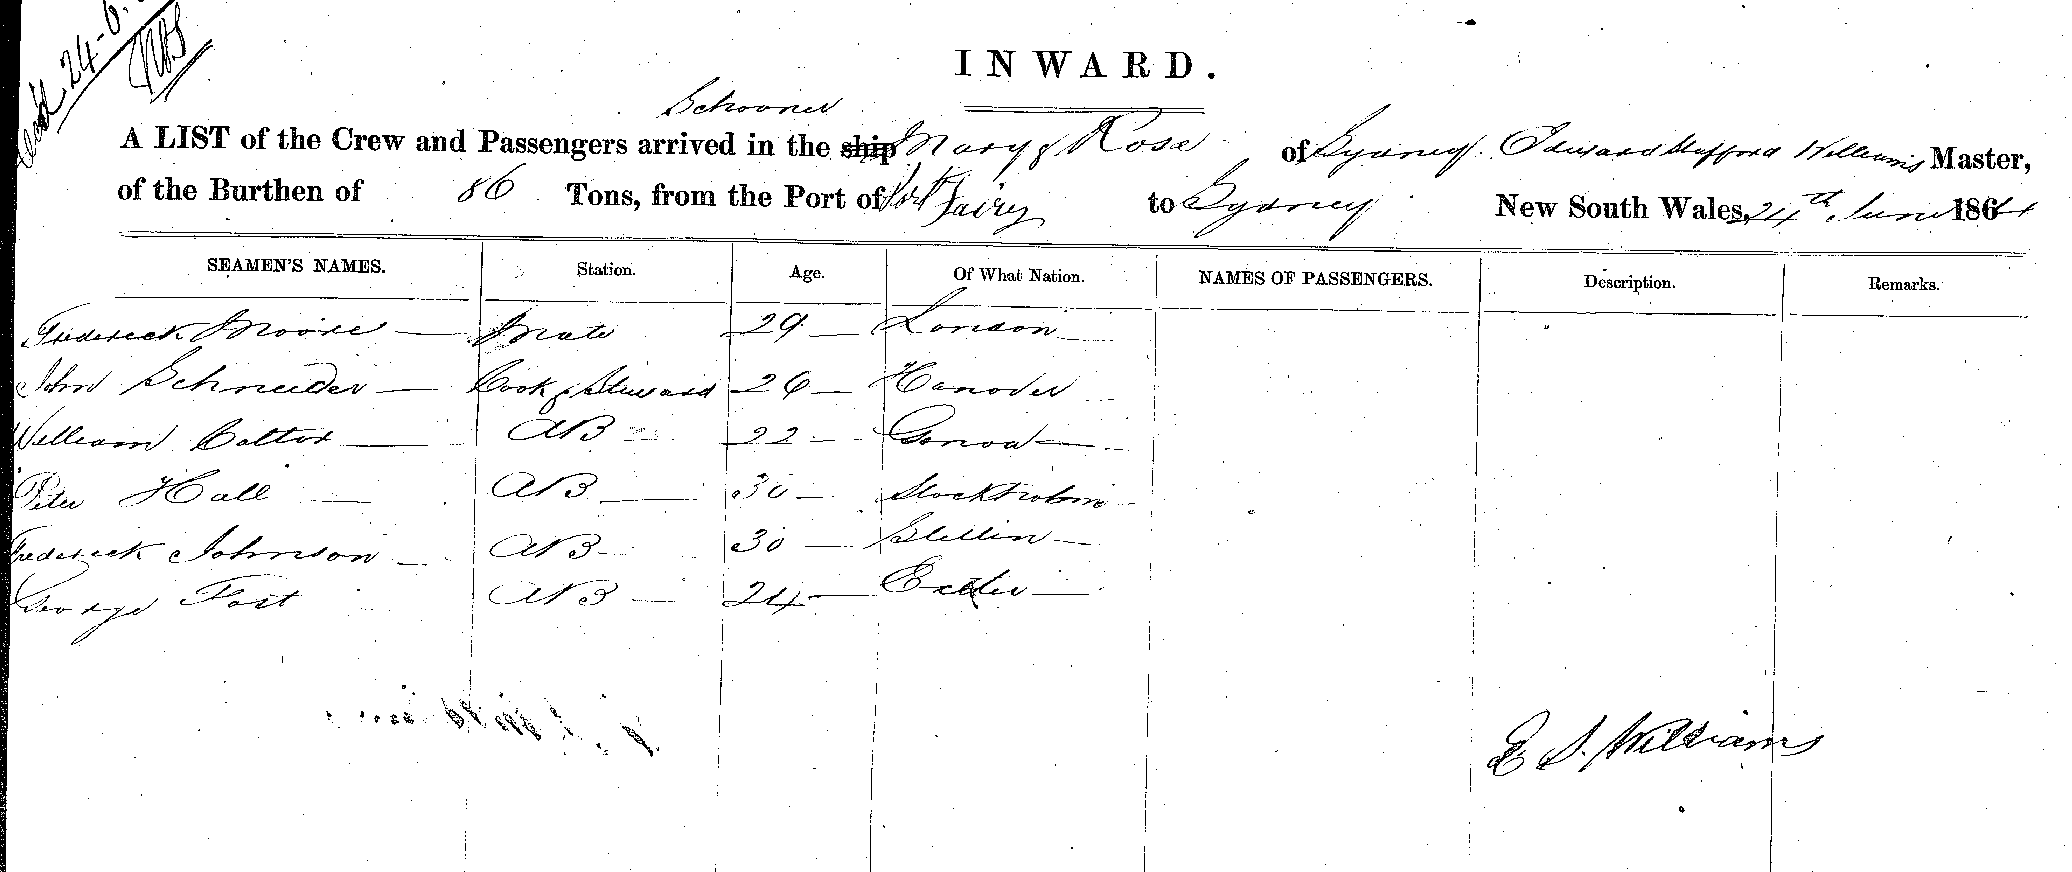 Recd 24-6
INWARD.
Schooner
A LIST of the Crew and Passengers arrived in the ship Mary & Rose of Sydney. Edward Stafford Williams Master,
of the Burthen of 86 Tons, from the Port of Port Fairy to Sydney New South Wales, 24th June 1864
SEAMEN'S NAMES. Station. Age. Of What Nation. NAMES OF PASSENGERS. Description. Remarks.
Frederick Moore Mate 29 London
John Schneider Cook & Steward 26 Hanover
William 22 Genoa
Peter Hall AB 30 Stockholm
Frederick Johnson AB 30 Stettin
George AB 24 Exeter
E S. Williams